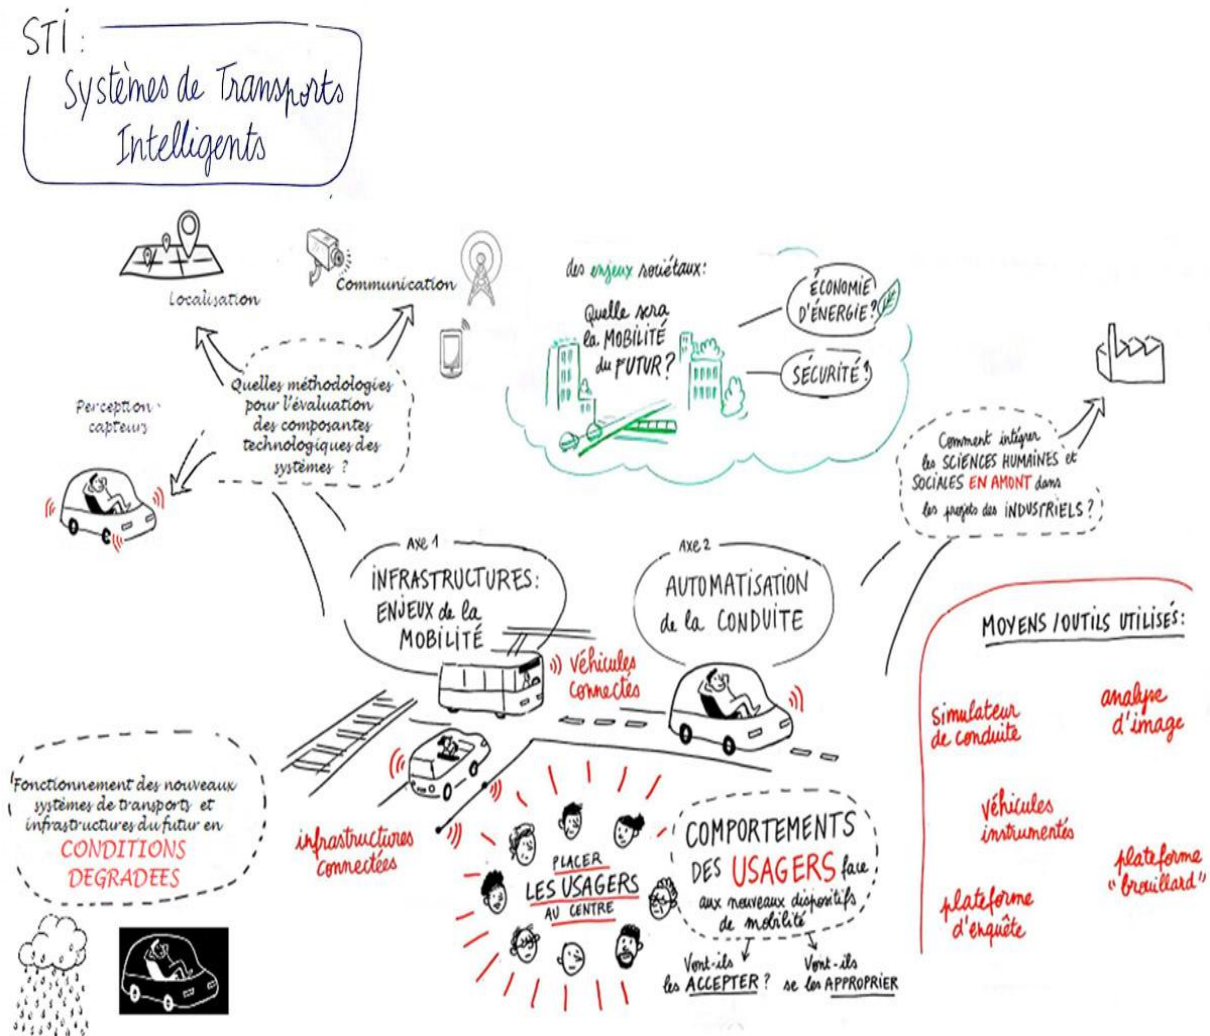 STI :
Systèmes de Transports
Intelligents
Localisation
Communication
Quelles méthodologies
pour l'évaluation
des composantes
technologiques des
systèmes ?
Perception -
capteurs
des enjeux sociétaux:
Quelle sera
la MOBILITÉ
du FUTUR ?
ÉCONOMIE
D'ÉNERGIE ?
SÉCURITÉ ?
Comment intégrer
les SCIENCES HUMAINES et
SOCIALES EN AMONT dans
les projets des INDUSTRIELS ?
AXE 1
INFRASTRUCTURES:
ENJEUX de la
MOBILITÉ
AXE 2
AUTOMATISATION
de la CONDUITE
véhicules
connectés
infrastructures
connectées
Fonctionnement des nouveaux
systèmes de transports et
infrastructures du futur en
CONDITIONS
DEGRADEES
PLACER
LES USAGERS
AU CENTRE
COMPORTEMENTS
DES USAGERS face
aux nouveaux dispositifs
de mobilité
Vont-ils
les ACCEPTER ?
Vont-ils
se les APPROPRIER
MOYENS / OUTILS UTILISÉS:
simulateur
de conduite
analyse
d'image
véhicules
instrumentés
plateforme
"brouillard"
plateforme
d'enquête